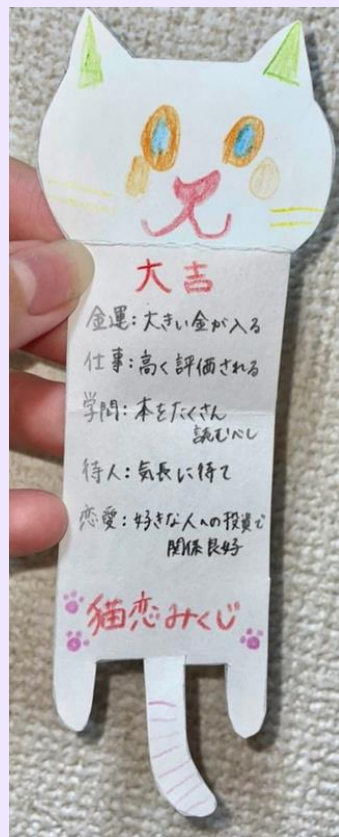 大吉
金運：大きい金が入る
仕事：高く評価される
学問：本をたくさん
読むべし
待人：気長に待て
恋愛：好きな人への投資で
関係良好
猫恋みくじ